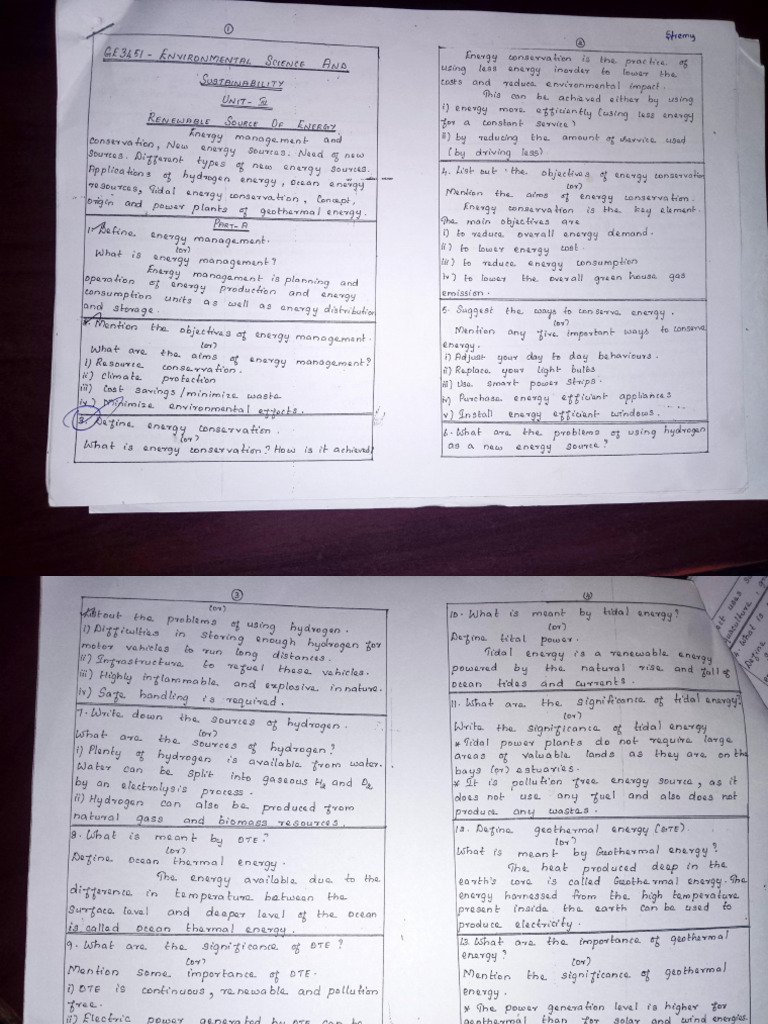 ①
GE3451 - ENVIRONMENTAL SCIENCE AND
SUSTAINABILITY
UNIT - IV
RENEWABLE SOURCE OF ENERGY
Energy management and
conservation, New energy sources. Need of new
sources. Different types of new energy sources.
Applications of hydrogen energy, ocean energy
resources, Tidal energy conservation, Concept,
origin and power plants of geothermal energy.
PART-A
1. Define energy management.
(or)
What is energy management?
Energy management is planning and
operation of energy production and energy
consumption units as well as energy distribution
and storage.
2. Mention the objectives of energy management.
(or)
What are the aims of energy management?
i) Resource conservation.
ii) climate protection
iii) Cost savings/minimize waste
iv) Minimize environmental effects.
3. Define energy conservation.
(or)
What is energy conservation? How is it achieved?
②
Energy conservation is the practice of
using less energy inorder to lower the
costs and reduce environmental impact.
This can be achieved either by using
i) energy more efficiently (using less energy
for a constant service)
ii) by reducing the amount of service used
(by driving less)
4. List out the objectives of energy conservation
(or)
Mention the aims of energy conservation.
Energy conservation is the key element.
The main objectives are
i) to reduce overall energy demand.
ii) to lower energy cost.
iii) to reduce energy consumption
iv) to lower the overall green house gas
emission.
5. Suggest the ways to conserve energy.
(or)
Mention any five important ways to conserve
energy.
i) Adjust your day to day behaviours.
ii) Replace your light bulbs
iii) Use smart power strips.
iv) Purchase energy efficient appliances
v) Install energy efficient windows.
6. What are the problems of using hydrogen
as a new energy source?
③
(or)
List out the problems of using hydrogen.
i) Difficulties in storing enough hydrogen for
motor vehicles to run long distances.
ii) Infrastructure to refuel these vehicles.
iii) Highly inflammable and explosive in nature.
iv) Safe handling is required.
7. Write down the sources of hydrogen.
(or)
What are the sources of hydrogen?
i) Plenty of hydrogen is available from water.
Water can be split into gaseous H2 and O2
by an electrolysis process.
ii) Hydrogen can also be produced from
natural gass and biomass resources.
8. What is meant by OTE?
(or)
Define Ocean thermal energy.
The energy available due to the
difference in temperature between the
Surface level and deeper level of the ocean
is called ocean thermal energy.
9. What are the significance of OTE?
(or)
Mention some importance of OTE.
i) OTE is continuous, renewable and pollution
free.
ii) Electric power generated by OTE can be
④
10. What is meant by tidal energy?
(or)
Define tital power.
Tidal energy is a renewable energy
powered by the natural rise and fall of
ocean tides and currents.
11. What are the significance of tidal energy?
(or)
Write the significance of tidal energy
* Tidal power plants do not require large
areas of valuable lands as they are on the
bays (or) estuaries.
* It is pollution free energy source, as it
does not use any fuel and also does not
produce any wastes.
12. Define geothermal energy (GTE).
(or)
What is meant by Geothermal energy?
The heat produced deep in the
earth's core is called Geothermal energy. The
energy harnessed from the high temperature
present inside the earth can be used to
produce electricity.
13. What are the importance of geothermal
energy?
(or)
Mention the significance of geothermal
energy.
* The power generation level is higher for
geothermal than for solar and wind energies